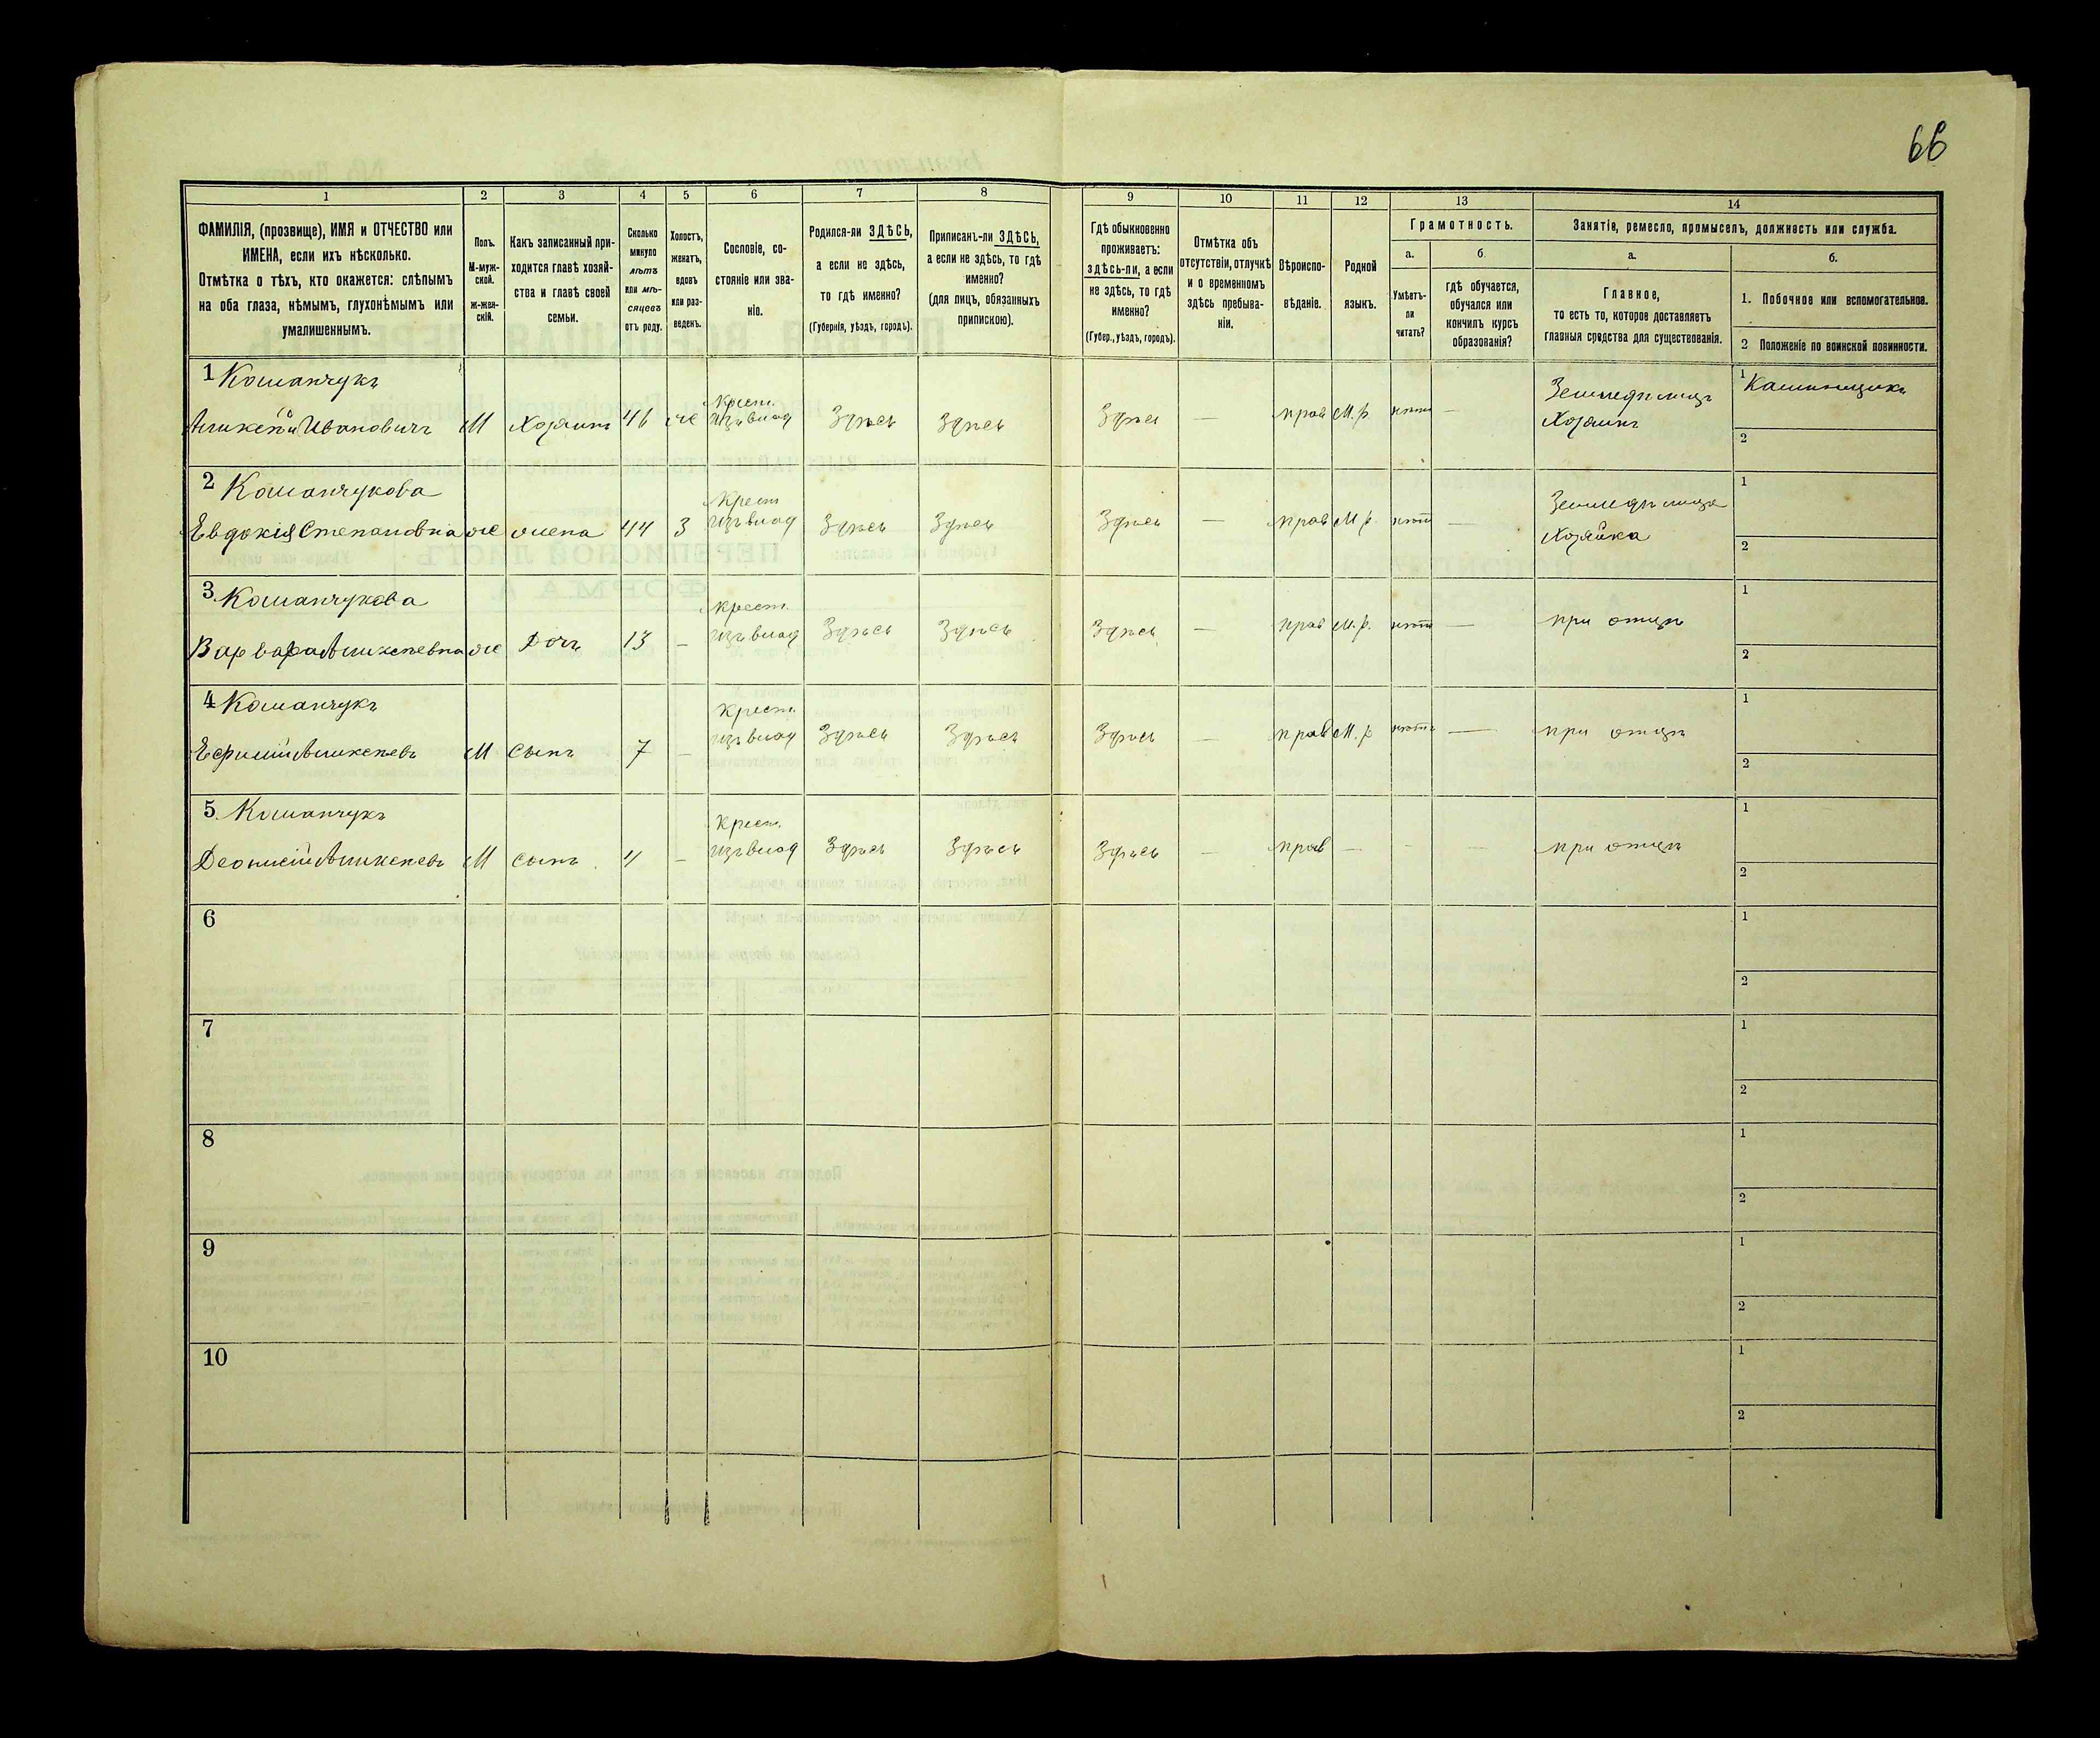 66
1 2 3 4 5 6 7 8 9 10 11 12 13 14
ФАМИЛІЯ, (прозвище), ИМЯ и ОТЧЕСТВО или
ИМЕНА, если ихъ нѣсколько.
Отмѣтка о тѣхъ, кто окажется: слѣпымъ
на оба глаза, нѣмымъ, глухонѣмымъ или
умалишеннымъ.
Полъ.
М-муж-
ской.
ж-жен-
скій.
Какъ записанный при-
ходится главѣ хозяй-
ства и главѣ своей
семьи.
Сколько
минуло
лѣтъ
или мѣ-
сяцевъ
отъ роду.
Холостъ,
женатъ,
вдовъ
или раз-
веденъ.
Сословіе, со-
стояніе или зва-
ніе.
Родился-ли ЗДѢСЬ,
а если не здѣсь,
то гдѣ именно?
(Губернія, уѣздъ, городъ).
Приписанъ-ли ЗДѢСЬ,
а если не здѣсь, то гдѣ
именно?
(для лицъ, обязанныхъ
припискою).
Гдѣ обыкновенно
проживаетъ:
здѣсь-ли, а если
не здѣсь, то гдѣ
именно?
(Губер., уѣздъ, городъ).
Отмѣтка объ
отсутствіи, отлучкѣ
и о временномъ
здѣсь пребыва-
ніи.
Вѣроиспо-
вѣданіе.
Родной
языкъ.
Грамотность.
а.
Умѣетъ-
ли
читать?
б.
гдѣ обучается,
обучался или
кончилъ курсъ
образованія?
Занятіе, ремесло, промыселъ, должность или служба.
а.
Главное,
то есть то, которое доставляетъ
главныя средства для существованія.
б.
1. Побочное или вспомогательное.
2 Положеніе по воинской повинности.
1 Команчукъ
Крест. Земледѣлецъ 1 Каменщикъ
Аликсѣй Ивановичъ М Хозяинъ 46 Ж изъ влад Здѣсь Здѣсь Здѣсь — прав М. р. нѣтъ — Хозяинъ
2
2 Команчукова Крест Земледѣлица 1
Евдокія Степановна Ж жена 44 З изъ влад Здѣсь Здѣсь Здѣсь — прав М. р. нѣтъ — Хозяйка
2
3 Команчукова Крест. 1
Варвара Аликсѣевна Ж Дочь 13 — изъ влад Здѣсь Здѣсь Здѣсь — прав М. р. нѣтъ — при отцѣ
2
4 Команчукъ Крест. 1
Ефимій Аликсѣевъ М Сынъ 7 — изъ влад Здѣсь Здѣсь Здѣсь — прав М. р нѣтъ — при отцѣ
2
5. Команчукъ Крест. 1
Деонисій Аликсѣевъ М сынъ 4 — изъ влад Здѣсь Здѣсь Здѣсь — прав — — — при отцѣ
2
6 1
2
7 1
2
8 1
2
9 1
2
10 1
2